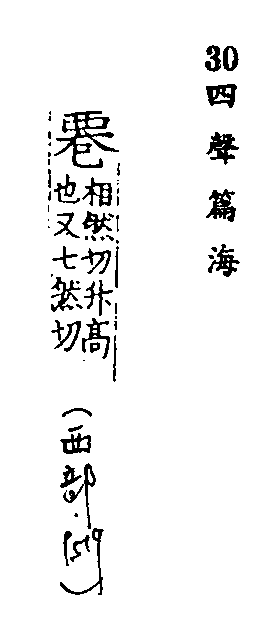 30四聲篇海
䙴
相然切升高
也又七然切
(西部.